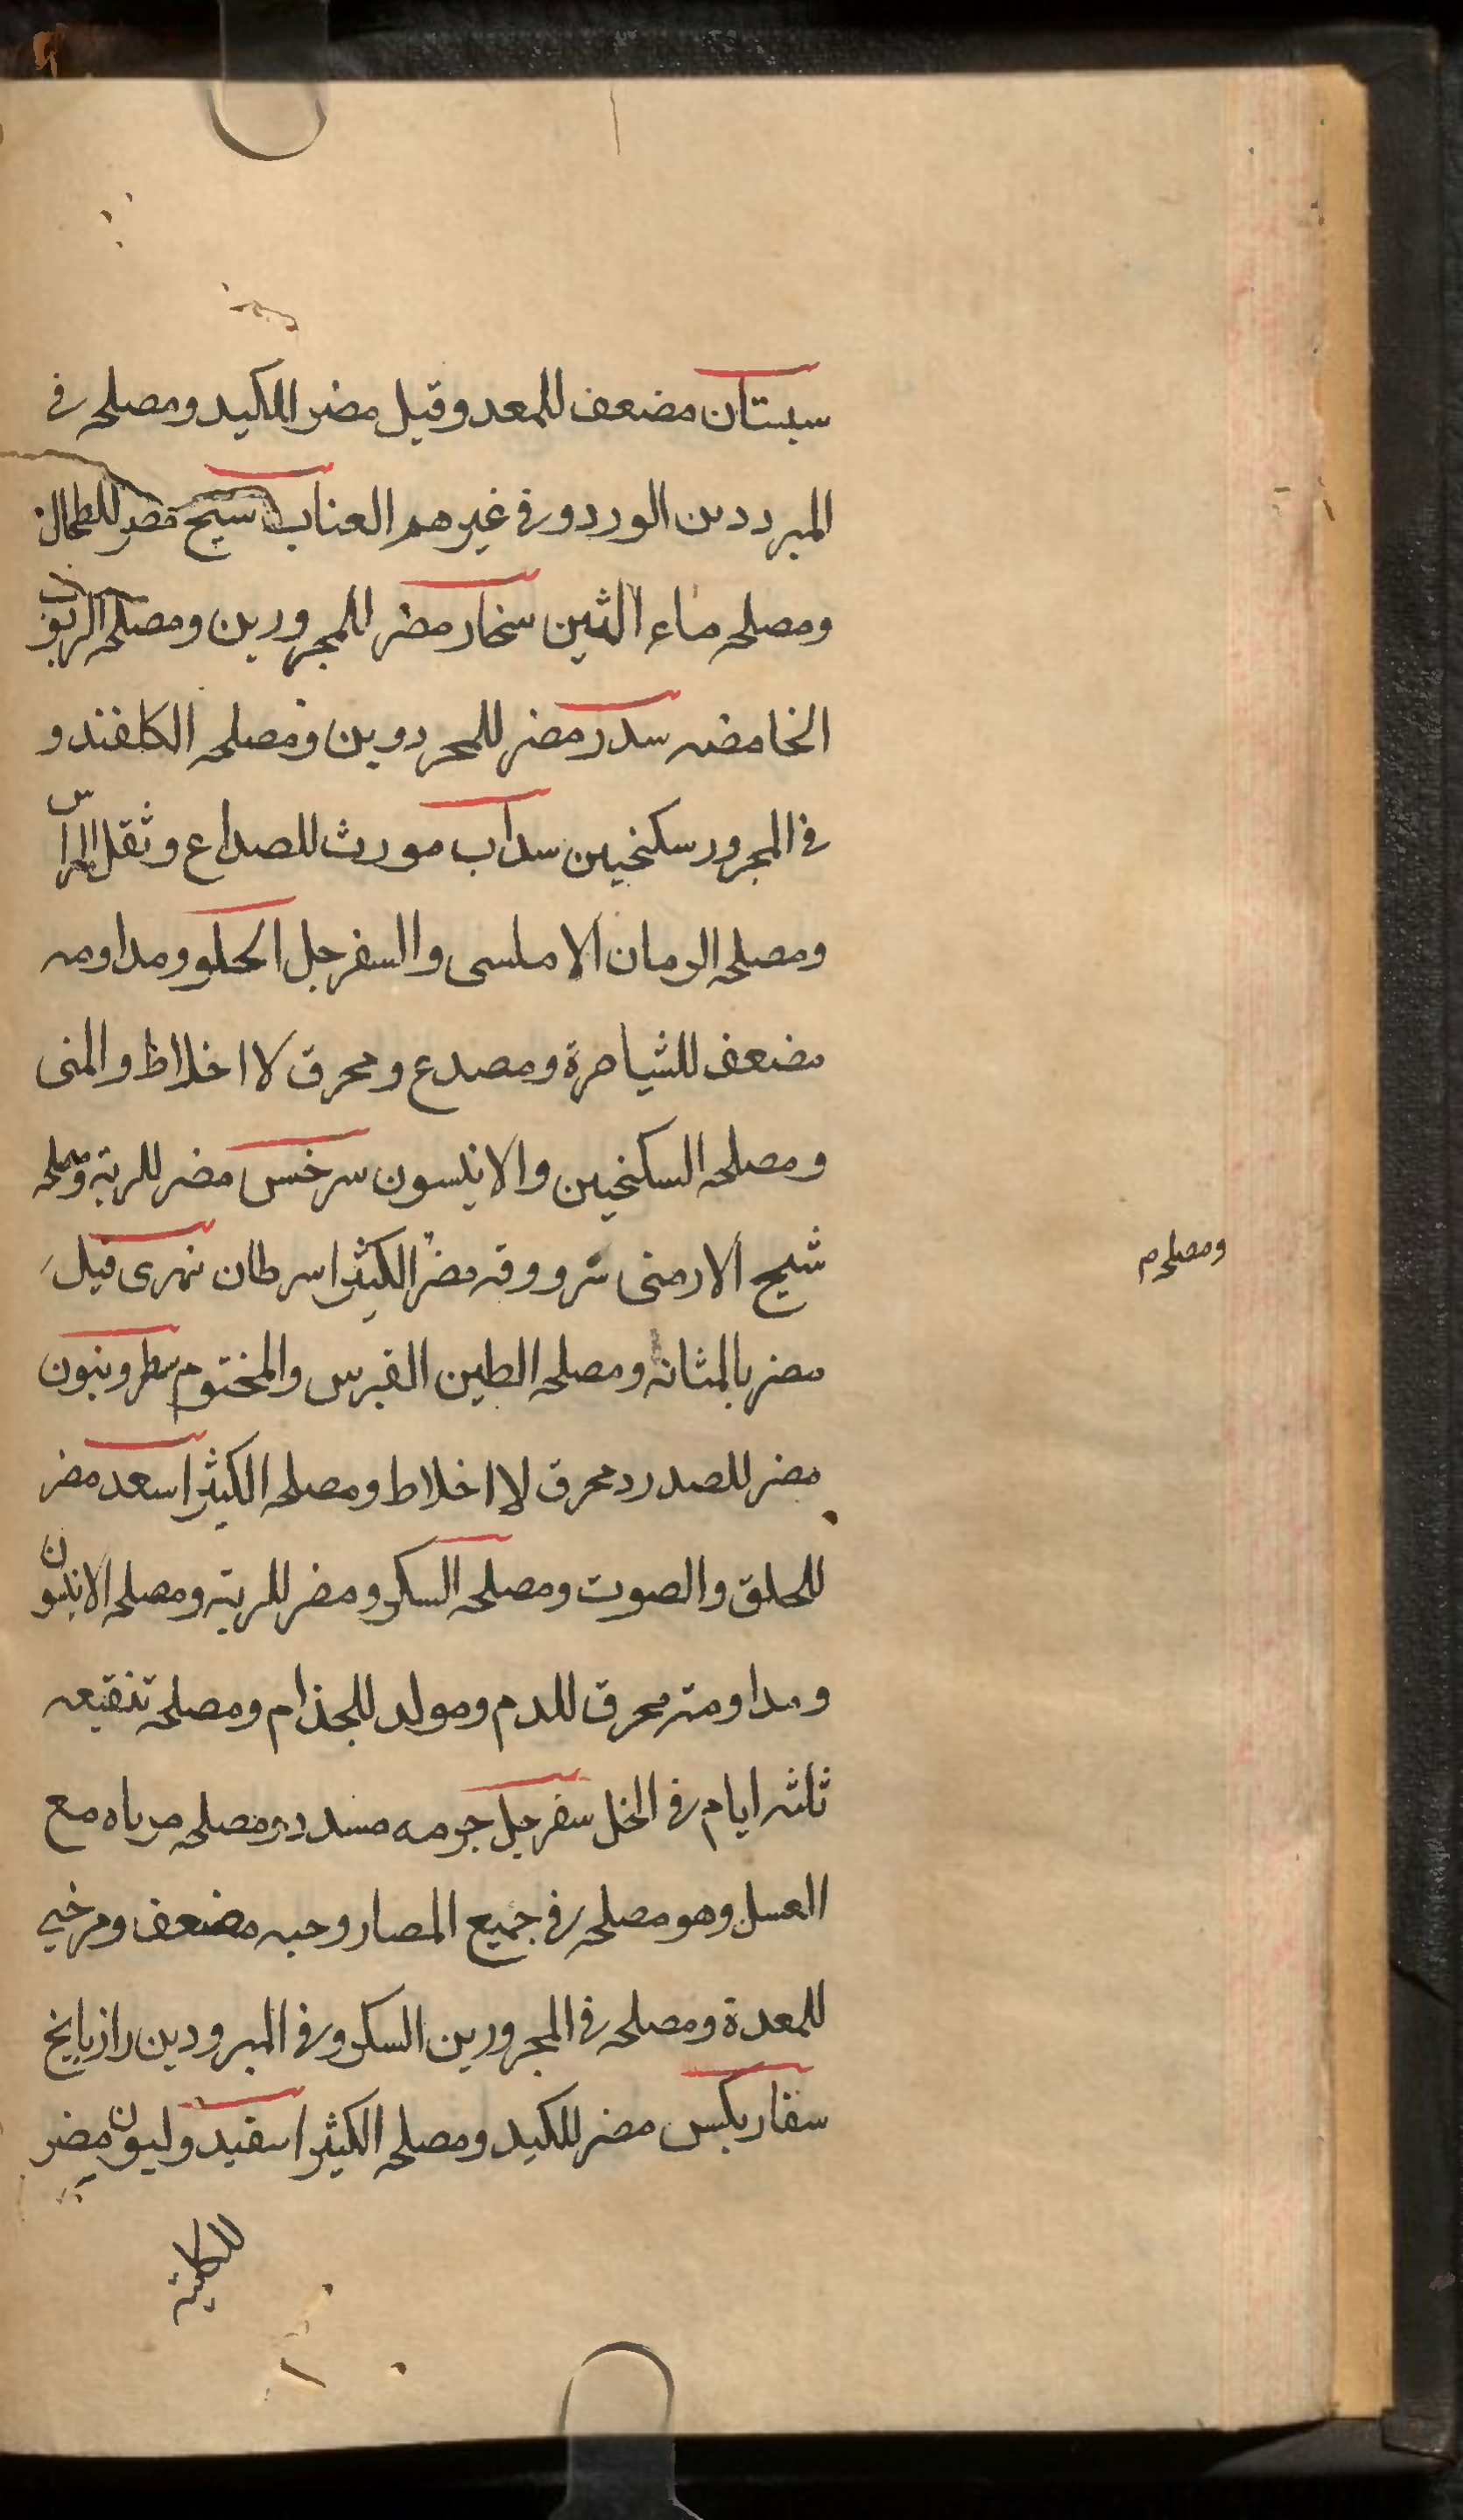 سبستان مضعف للمعد وقيل مضر للكبد ومصلحه في
المبرددين الورد وفي غيرهم العناب سبج مضر للطحال
ومصلحه ماء التين سخار مضر للمجرورين ومصلحه الربوب
الخامضه سدر مضر للمحردوين ومصلحه الكلفند و
في المجرور سكنجبين سداب مورث للصداع وثقل الراس
ومصلحه الرمان الاملسى والسفرجل الحلو ومداومه
مضعف للثياصرة ومصدع ومحرق لااخلاط والمنى
ومصلحه السكنجبين والانيسون سرخس مضر للرية ومصلحه
شيح الارمنى سرووقه مضر الكثيرا سرطان نهرى قيل
ومصلحه م
مضر بالمثانة ومصلحه الطين القبرس والمختوم سطرونيون
مضر للصدر ومحرق لااخلاط ومصلحه الكثيرا سعد مضر
للحلق والصوت ومصلحه السكر ومضر للرية ومصلحه الانيسون
ومداومته محرق للدم ومولد للجذام ومصلحه تنقيعه
ثلثه ايام في الخل سفرجل جرمه مسدد ومصلحه مرباه مع
العسل وهو مصلحه في جميع المصار وحبه مضعف ومرخي
للمعدة ومصلحه في المجرورين السكر وفي المبرودين رازيانج
سقاريكس مضر للكبد ومصلحه الكثيرا سفيد وليون مضر
للكلية